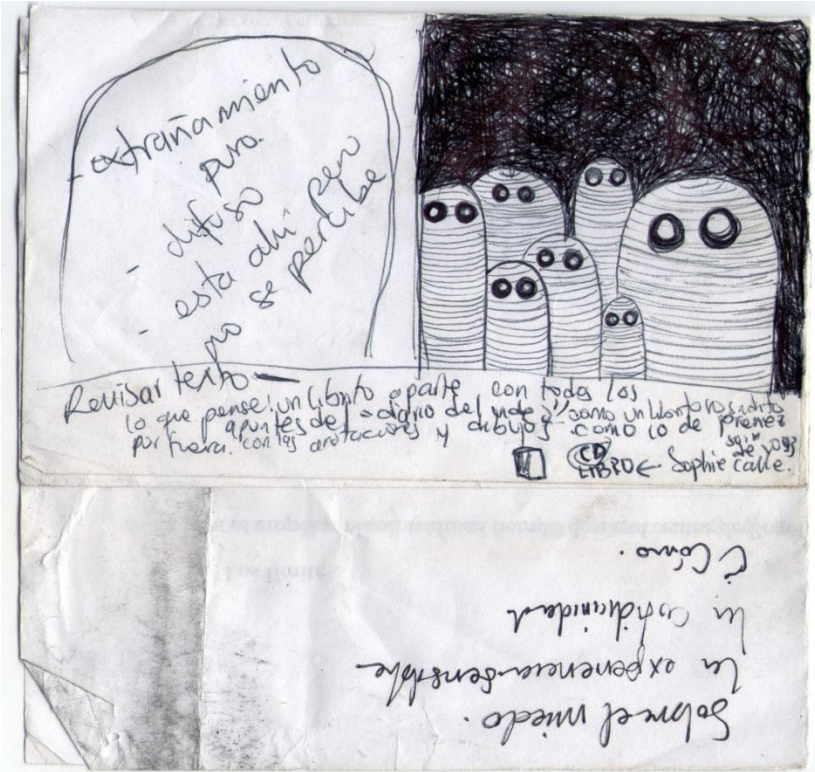 - extrañamiento
puro.
- difuso
- esta ahi pero
no se percibe
Revisar texto
lo que pense: un librito aparte con todos los
apuntes del diario del como un librito
por fuera. con las anotaciones y dibujos como lo de jovenes
de
CD
LIBRO ← Sophie Calle.
Sobre el miedo.
la experiencia sensible
la cotidianidad
Cómo.